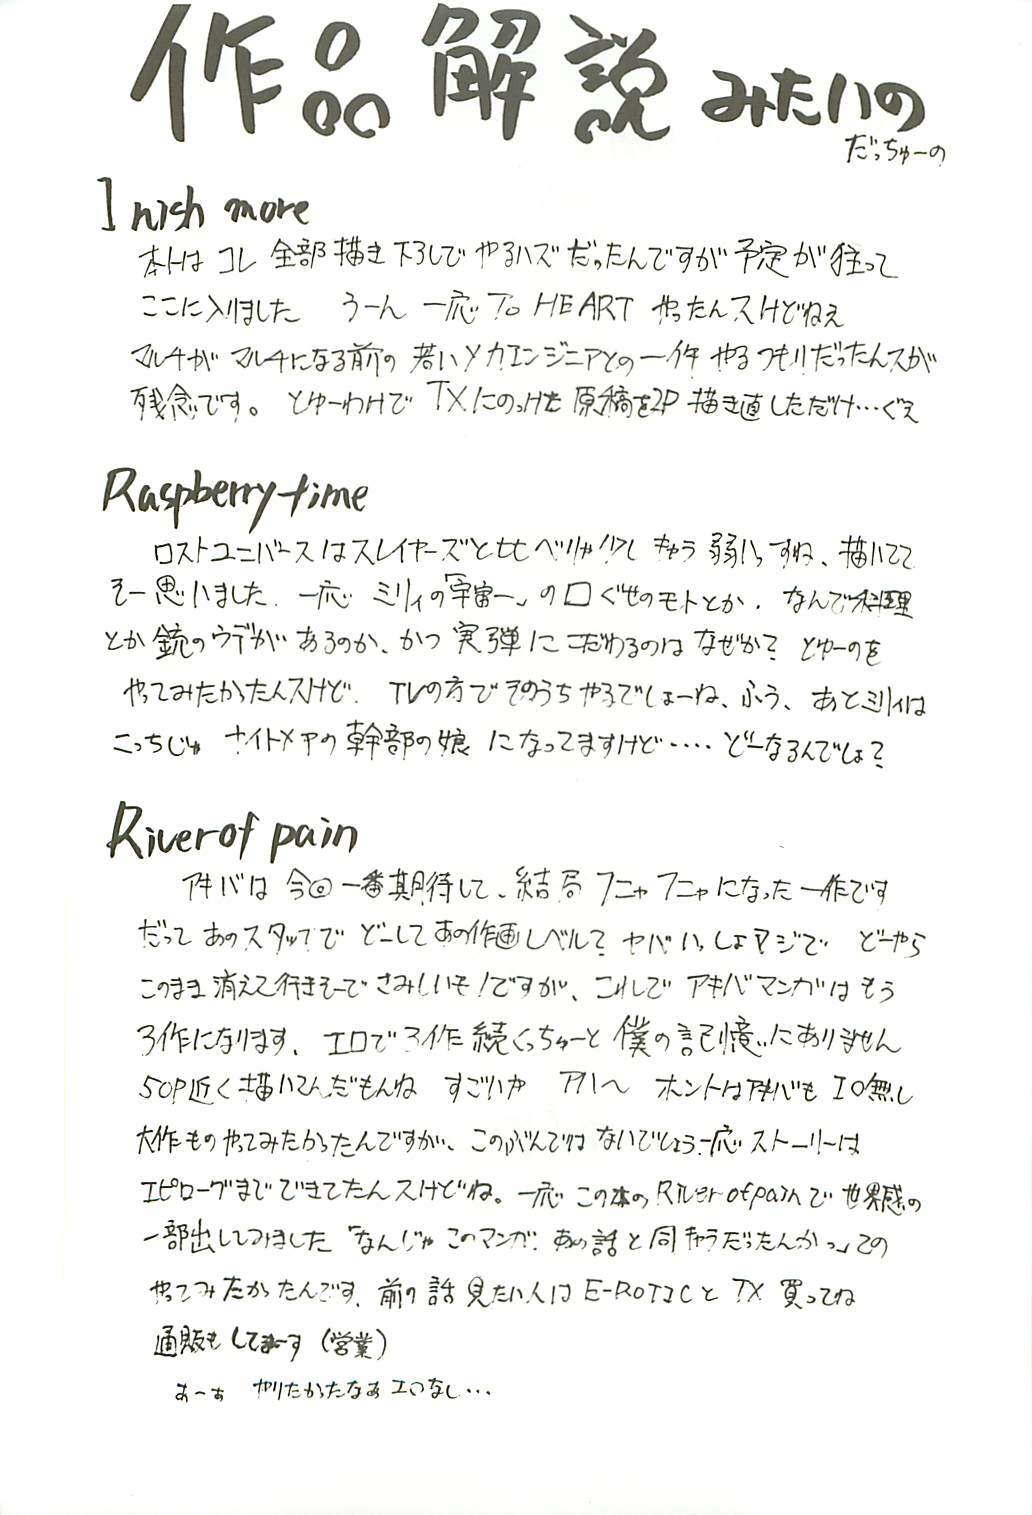 作品解説みたいの
だっちゅーの
I wish more
本トは コレ 全部描き下ろしで やるハズだったんですが予定が狂って
ここに入りました うーん 一応 To HEART やったんスけどねぇ
マルチが マルチになる前の 若いメカエンジニアとの一件 やるつもりだったんスが
残念です。 とゆーわけで TXにのっけた 原稿を2P 描き直しただけ…ぐえ
Raspberry time
ロストユニバースはスレイヤーズと比べりゃ少し キャラ弱いっすね、描いてて
そー思いました. 一応 ミリィの「宇宙一」の口ぐせのモトとか. なんで料理
とか銃のウデがあるのか、かつ 実弾に こだわるのは なぜか? とゆーのを
やってみたかったんスけど. TVの方で そのうちやるでしょーね、ふう、あとミリィは
こっちじゃ ナイトメアの幹部の娘 になってますけど‥‥どーなるんでしょ?
River of pain
アキバは 今回一番期待して、結局 フニャフニャになった一作です
だって あのスタッフで どーしてあの作画レベル? ヤバいっしょマジで どーやら
このまま消えて行きそーで さみしいモノですが、これで アキバマンガはもう
3作になります、 エロで3作続くっちゅーと 僕の記憶にありません
50P近く描いてんだもんね すごいや アハヘ ホントはアキバも エロ無し
大作ものやってみたかったんですが、このぶんでは ないでしょう.一応ストーリーは
エピローグまでできてたんスけどね。一応 この本のRiver of painで 世界感の
一部出してみました「なんじゃこのマンガ. あの話と同キャラだったんかっ」ての
やってみたかったんです. 前の話見たい人は E-ROTICと TX 買ってね
通販も してまーす (営業)
あーぁ やりたかったなぁ エロなし…